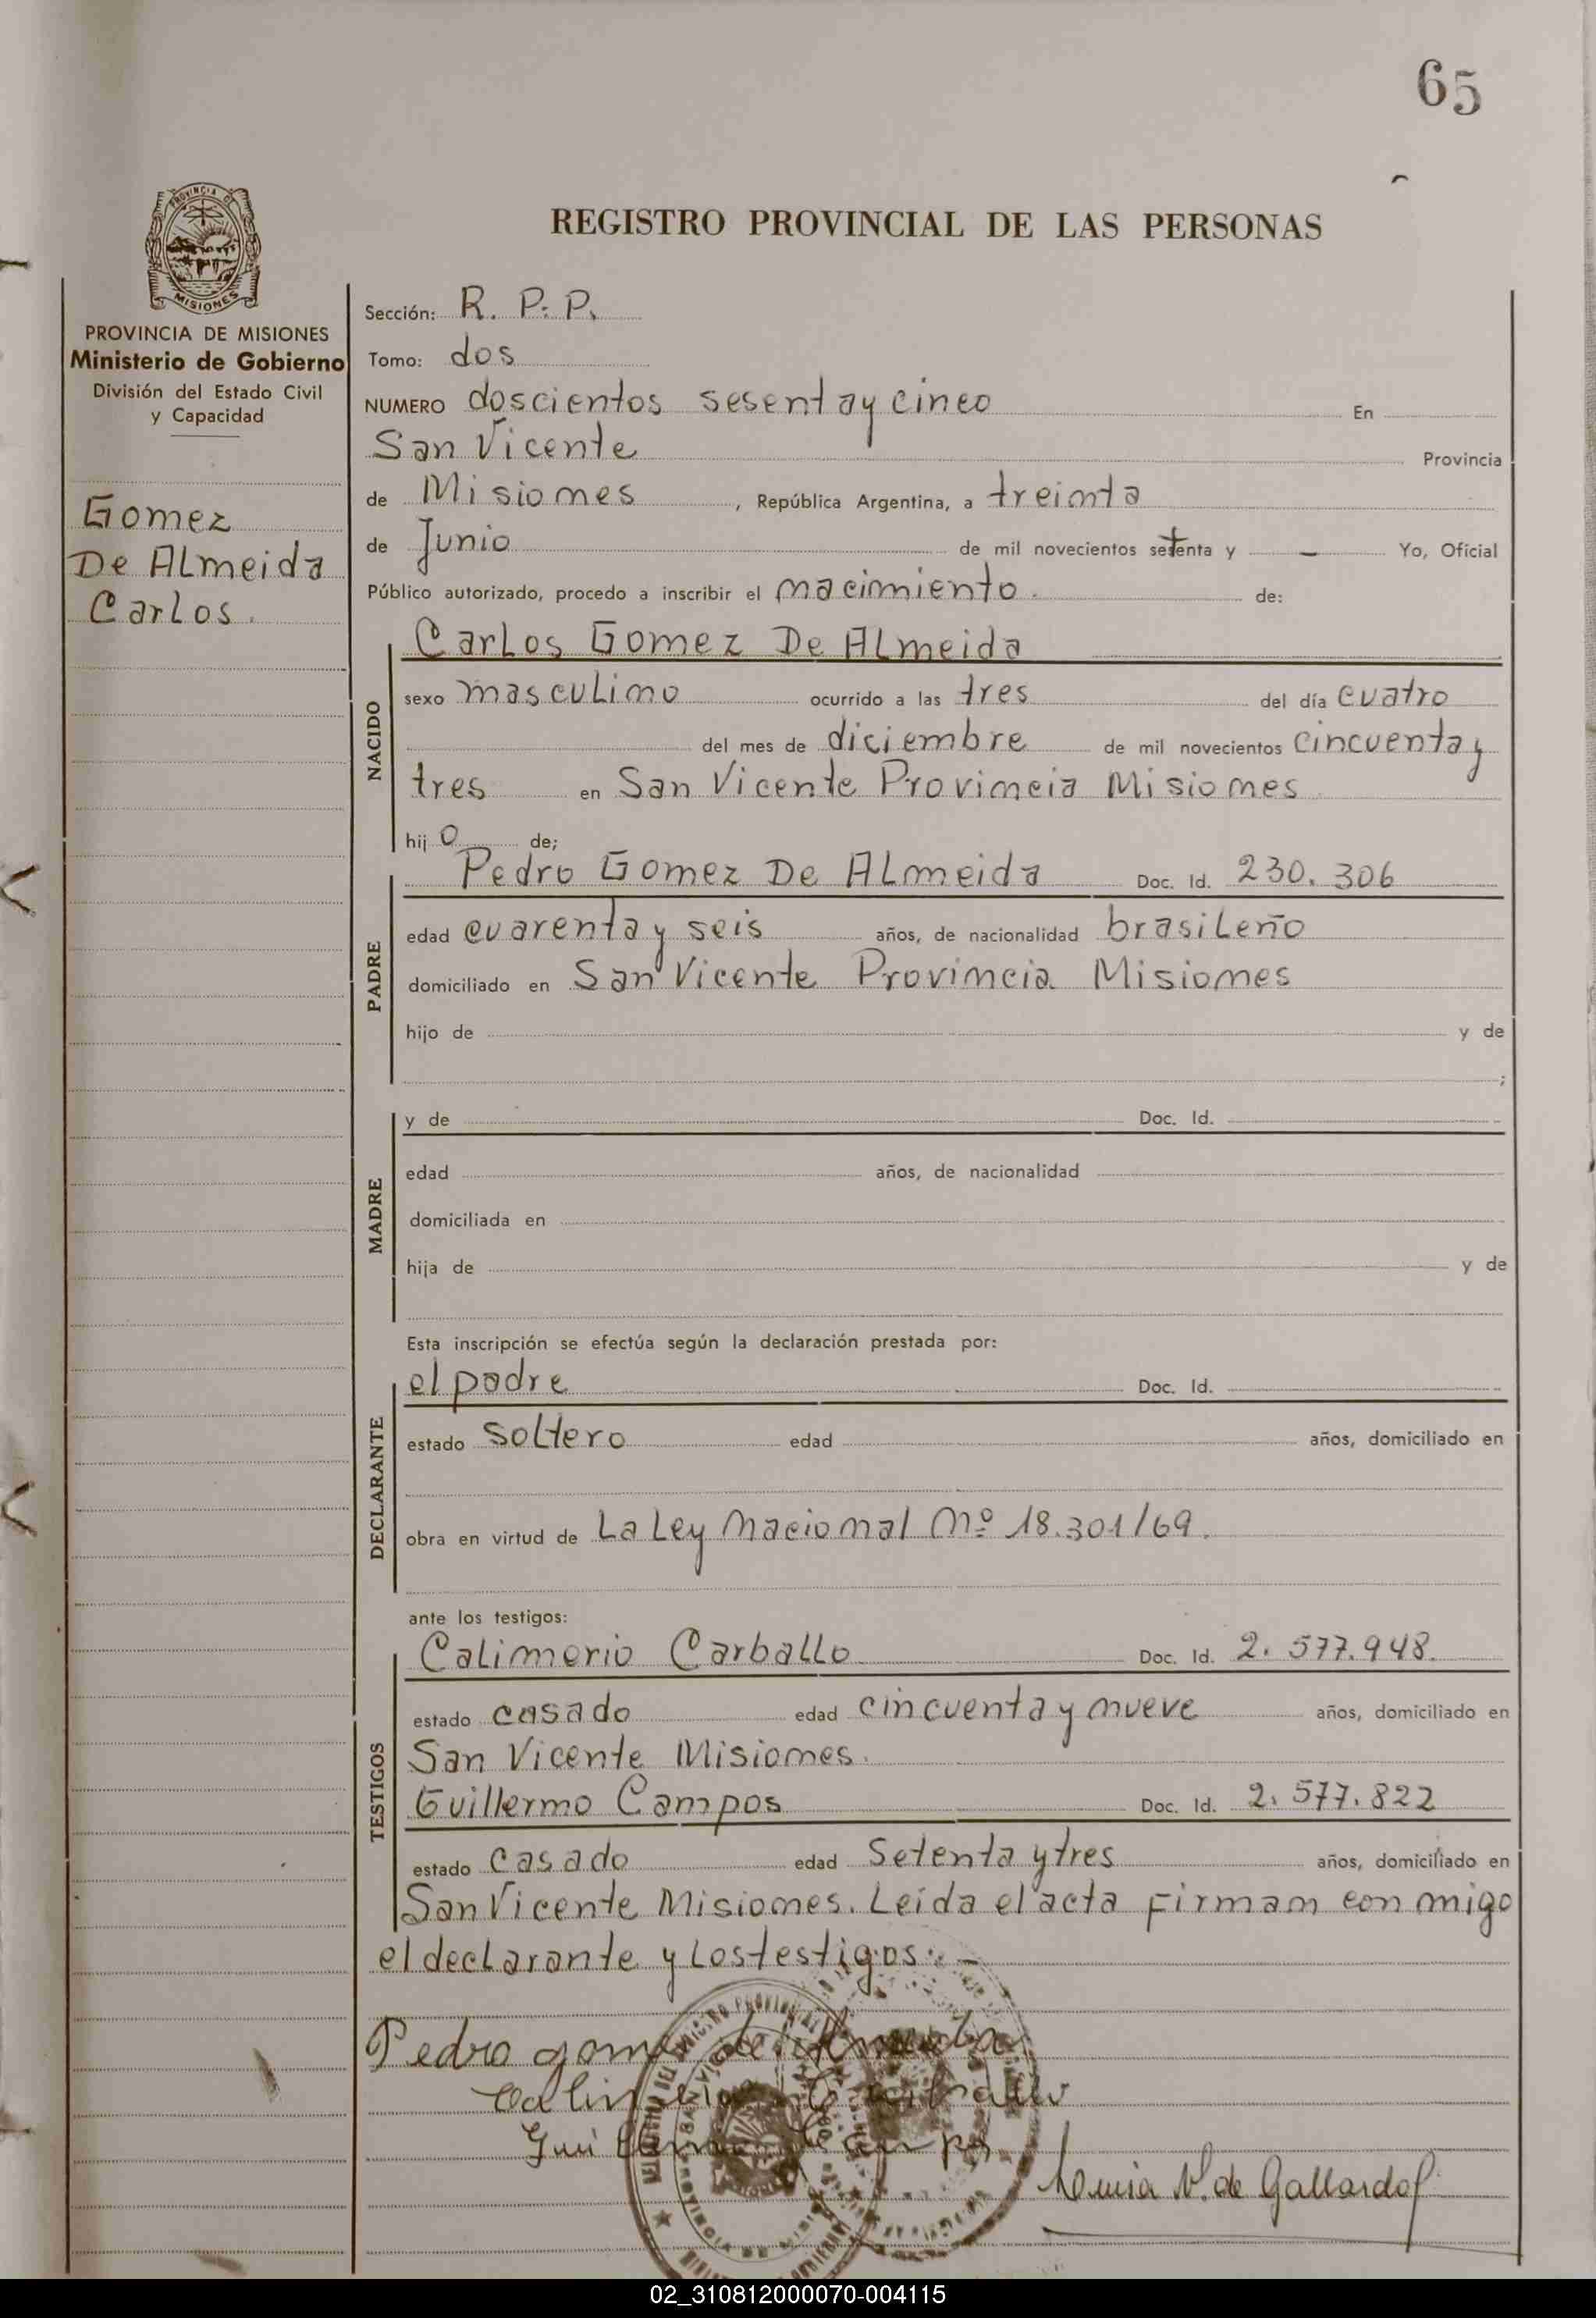 65
REGISTRO PROVINCIAL DE LAS PERSONAS
PROVINCIA DE
MISIONES
PROVINCIA DE MISIONES
Ministerio de Gobierno
División del Estado Civil
y Capacidad
Gomez
De ALmeida
Carlos.
Sección: R. P. P.
Tomo: dos
NUMERO doscientos sesenta y cinco En
San Vicente Provincia
de Misiones, República Argentina, a treinta
de Junio de mil novecientos setenta y — Yo, Oficial
Público autorizado, procedo a inscribir el nacimiento. de:
NACIDO
Carlos Gomez De ALmeida
sexo masculino ocurrido a las tres del día cuatro
del mes de diciembre de mil novecientos cincuenta y
tres en San Vicente Provincia Misiones
hijo de;
PADRE
Pedro Gomez De ALmeida Doc. Id. 230.306
edad cuarenta y seis años, de nacionalidad brasileño
domiciliado en San Vicente Provincia Misiones
hijo de y de
;
MADRE
y de Doc. Id.
edad años, de nacionalidad
domiciliada en
hija de y de
Esta inscripción se efectúa según la declaración prestada por:
DECLARANTE
el padre Doc. Id.
estado soltero edad años, domiciliado en
obra en virtud de La Ley Nacional Nº 18.301/69.
ante los testigos:
TESTIGOS
Calimerio Carballo Doc. Id. 2.577.948.
estado casado edad cincuenta y nueve años, domiciliado en
San Vicente Misiones.
Guillermo Campos Doc. Id. 2.577.822
estado casado edad Setenta y tres años, domiciliado en
San Vicente Misiones. Leída el acta firman conmigo
el declarante y los testigos:. —
Pedro gomez de Almeida
Calimerio Carballo
Guillermo Campos
de Gallardo
02_310812000070-004115